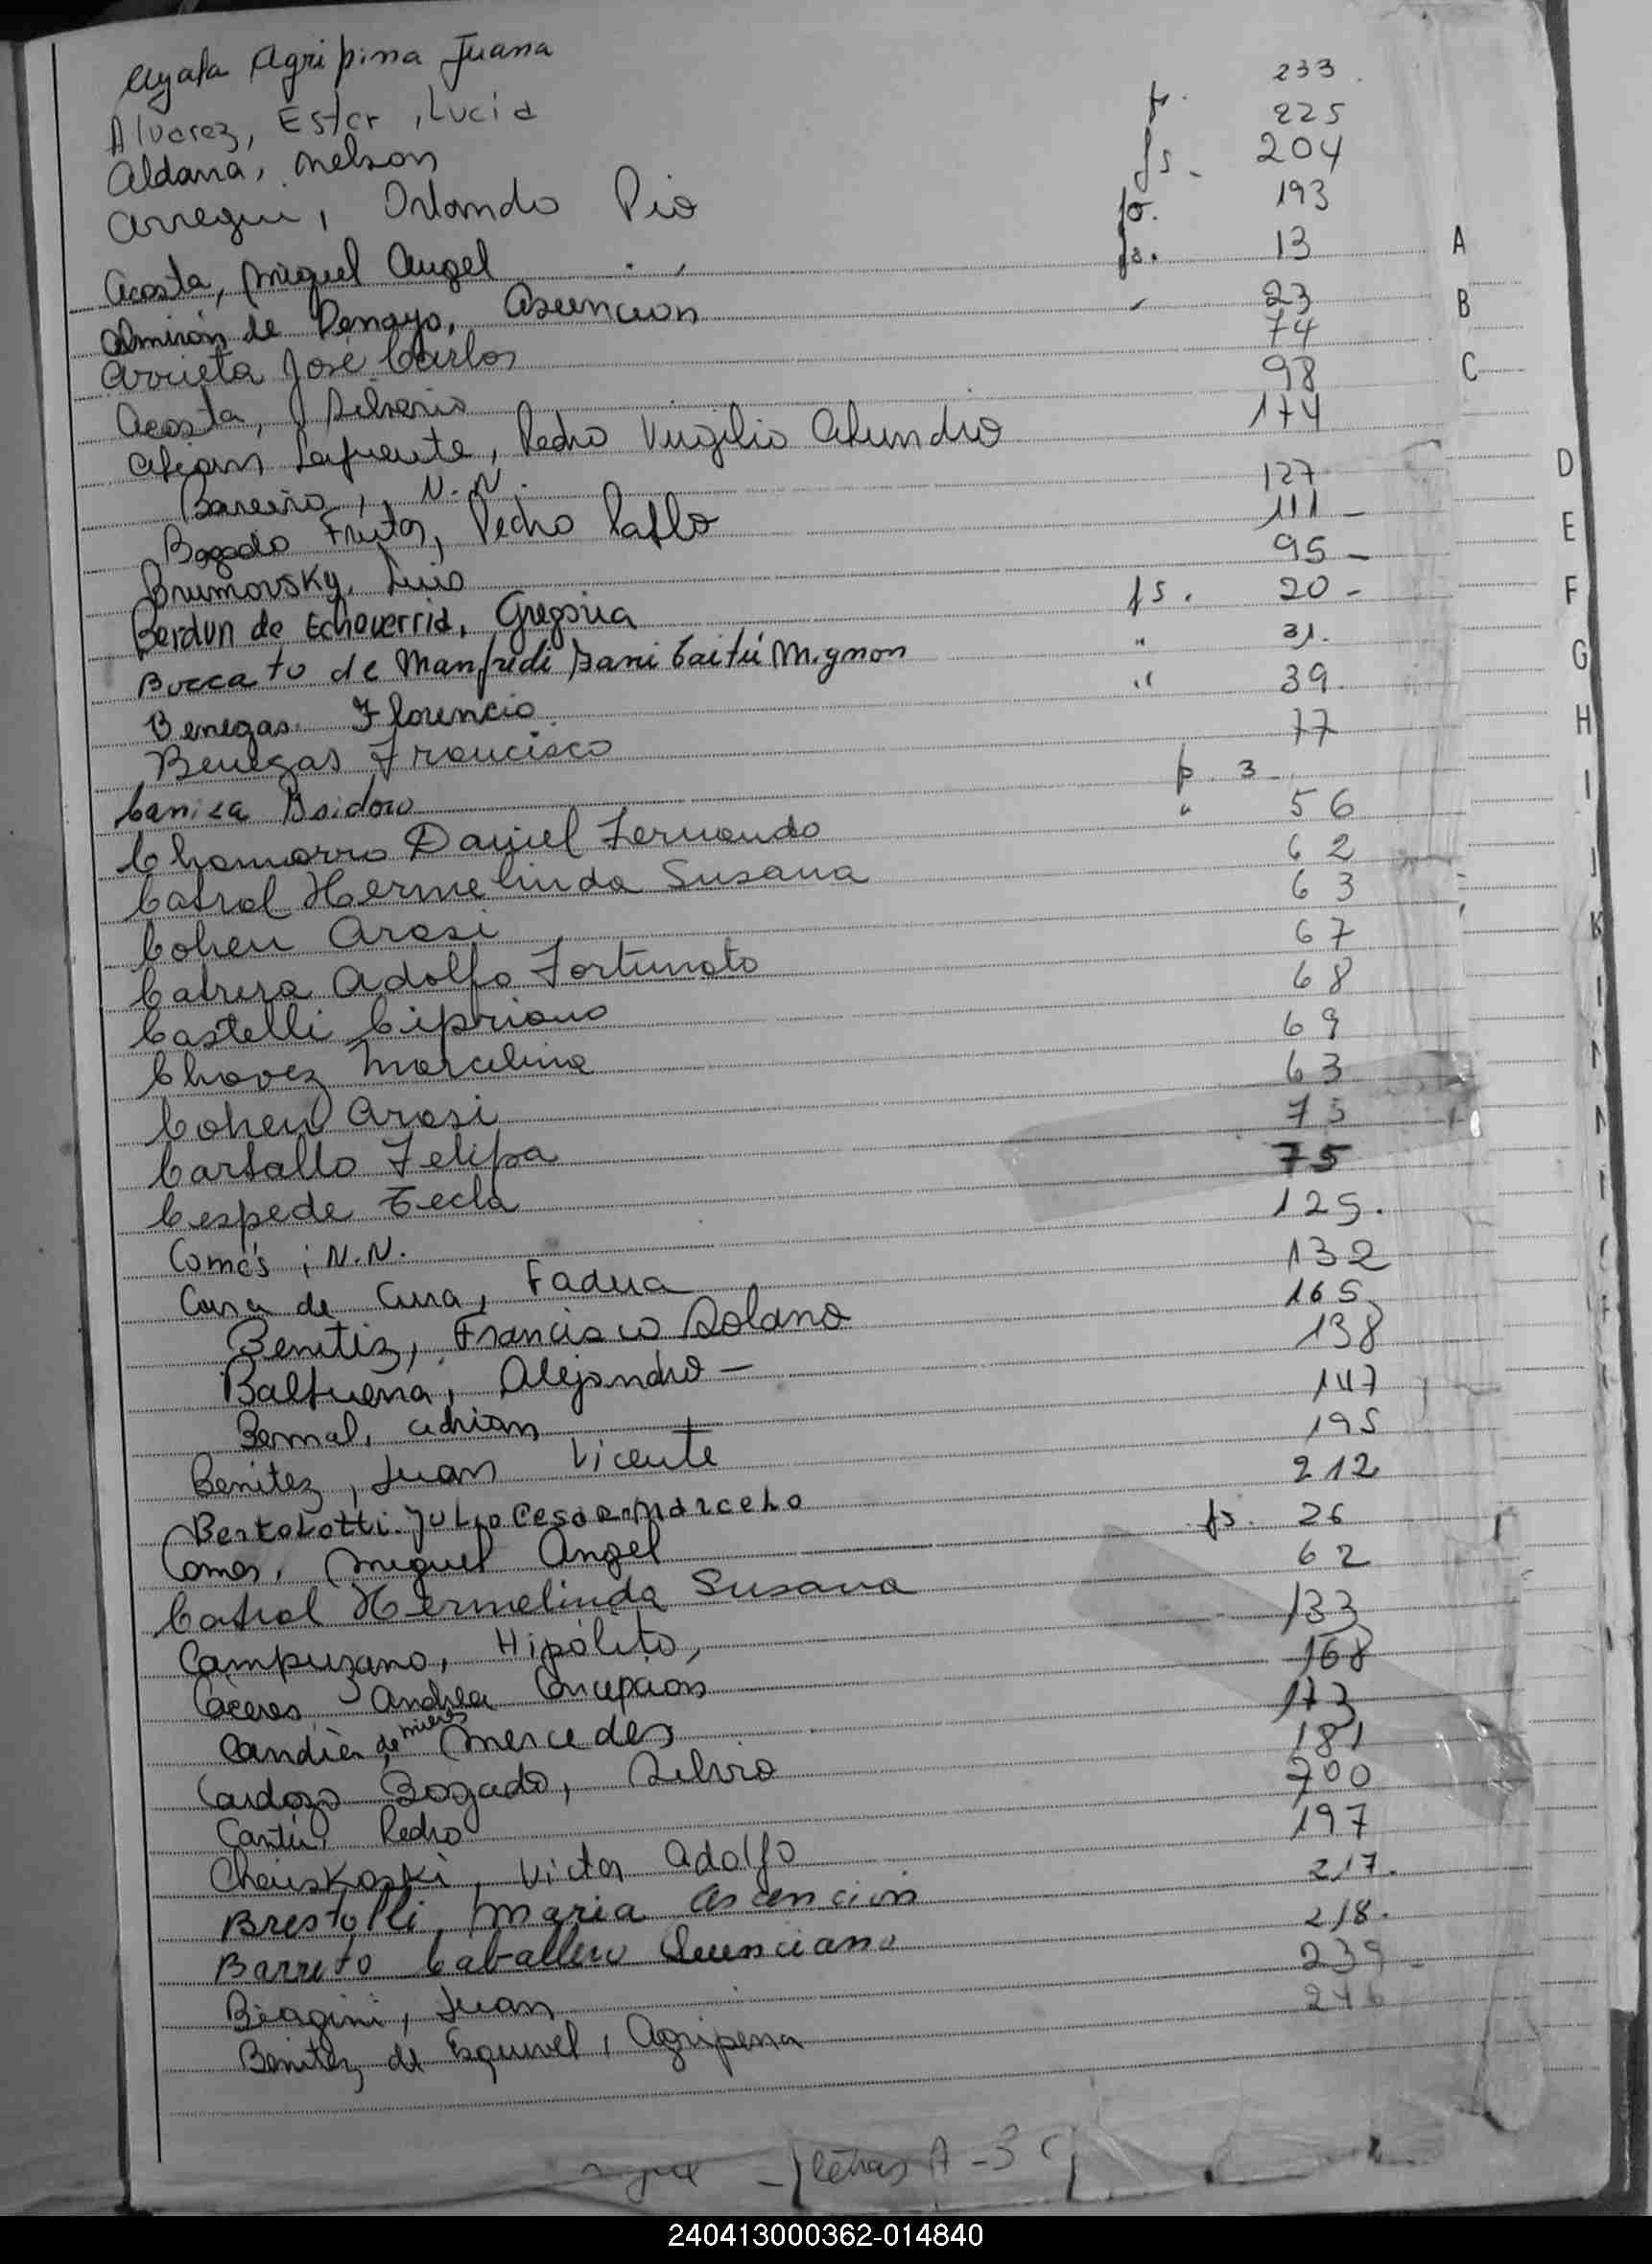 Ayala Agripina Juana 233
Alvarez, Ester, Lucia fs. 225
Aldana, Nelson fs. 204
Arregui, Orlando Pio fs. 193
Acosta, Miguel Angel fs. 13 A
Almirón de Penayo, Asuncion 23 B
Arrieta José Carlos 74
Acosta, Silverio 98 C
Lafuente, Pedro Virgilio 174
Bareiro, N.N. 127 D
Bogado Frutos, Pedro Pablo 111 -
Brumovsky, Luis 95 - E
Berdun de Echeverria, Gregoria fs. 20 - F
Boccato de Manfredi, Mignon " 31. G
Benegas Florencio " 39
Benegas Francisco 77 H
Caniza Isidoro p. 3 I
Chamorro Daniel Fernando " 56
Cabral Hermelinda Susana 62 J
Cohen Arasi 63
Cabrera Adolfo Fortunato 67 K
Castelli Cipriano 68
Chavez Marcelina 69
Cohen Arasi 63
Carballo Felipa 73
Cespede Tecla 75
Comes, N.N. 125.
Cura de Cura, Fadua 132
Benitez, Francisco Solano 165
Balbuena, Alejandro - 138
Bernal, Adrian 147
Benitez, Juan Vicente 195
Bertolotti Julio Cesar Marcelo 212
Comes, Miguel Angel fs. 26
Cabral Hermelinda Susana 62
Campuzano, Hipólito, 133
Cáceres, Andrea Concepción 168
Candia de Mieres, Mercedes 173
Cardozo Bogado, Silvio 181
Cantú, Pedro 200
Victor Adolfo 197
Maria Ascencion 217.
Barreto Caballero 218.
Biagini, Juan 239 -
Benitez de Esquivel, Agripena 246
letras A - B C
240413000362-014840